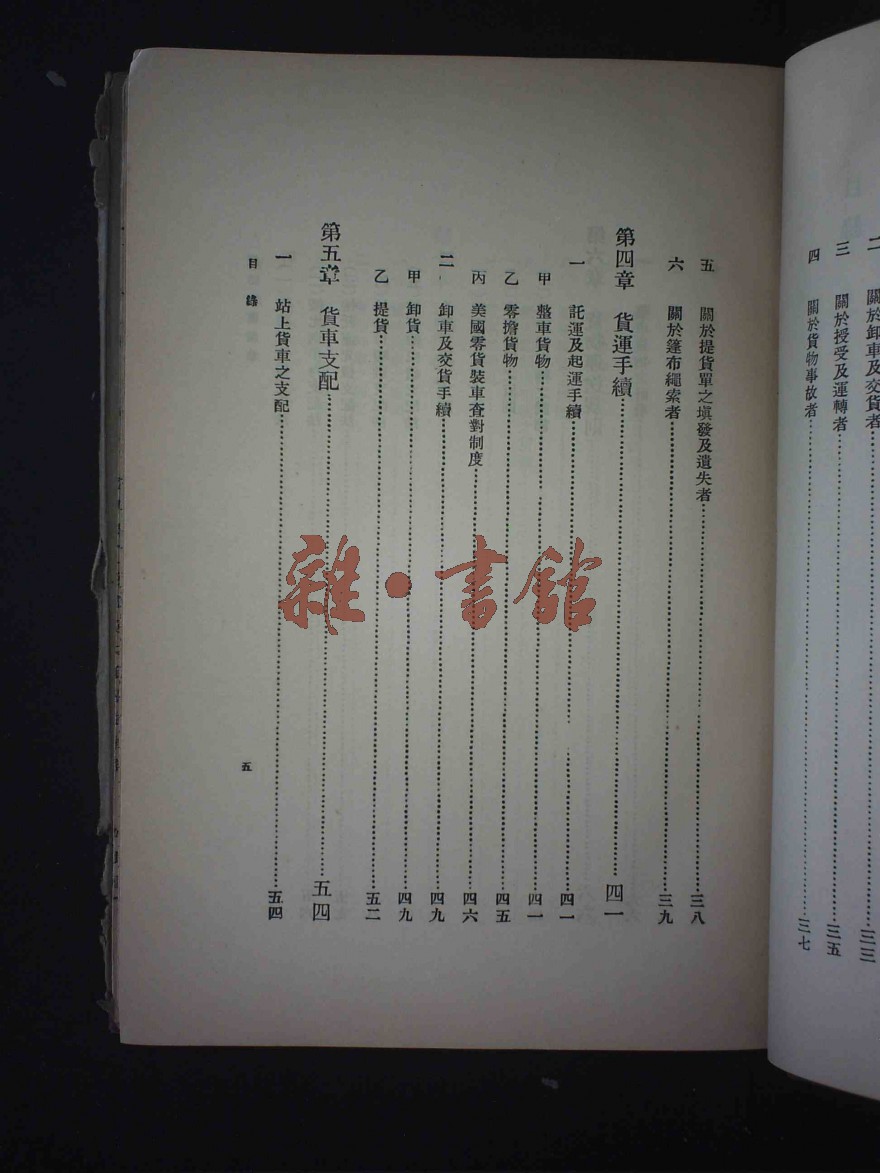 二　關於卸車及交貨者……三三
三　關於授受及運轉者……三五
四　關於貨物事故者……三七
五　關於提貨單之塡發及遺失者……三八
六　關於篷布繩索者……三九
第四章　貨運手續……四一
一　託運及起運手續……四一
甲　整車貨物……四一
乙　零擔貨物……四五
丙　美國零貨裝車查對制度……四六
二　卸車及交貨手續……四九
甲　卸貨……四九
乙　提貨……五二
第五章　貨車支配……五四
一　站上貨車之支配……五四
目錄
五
雜·書館